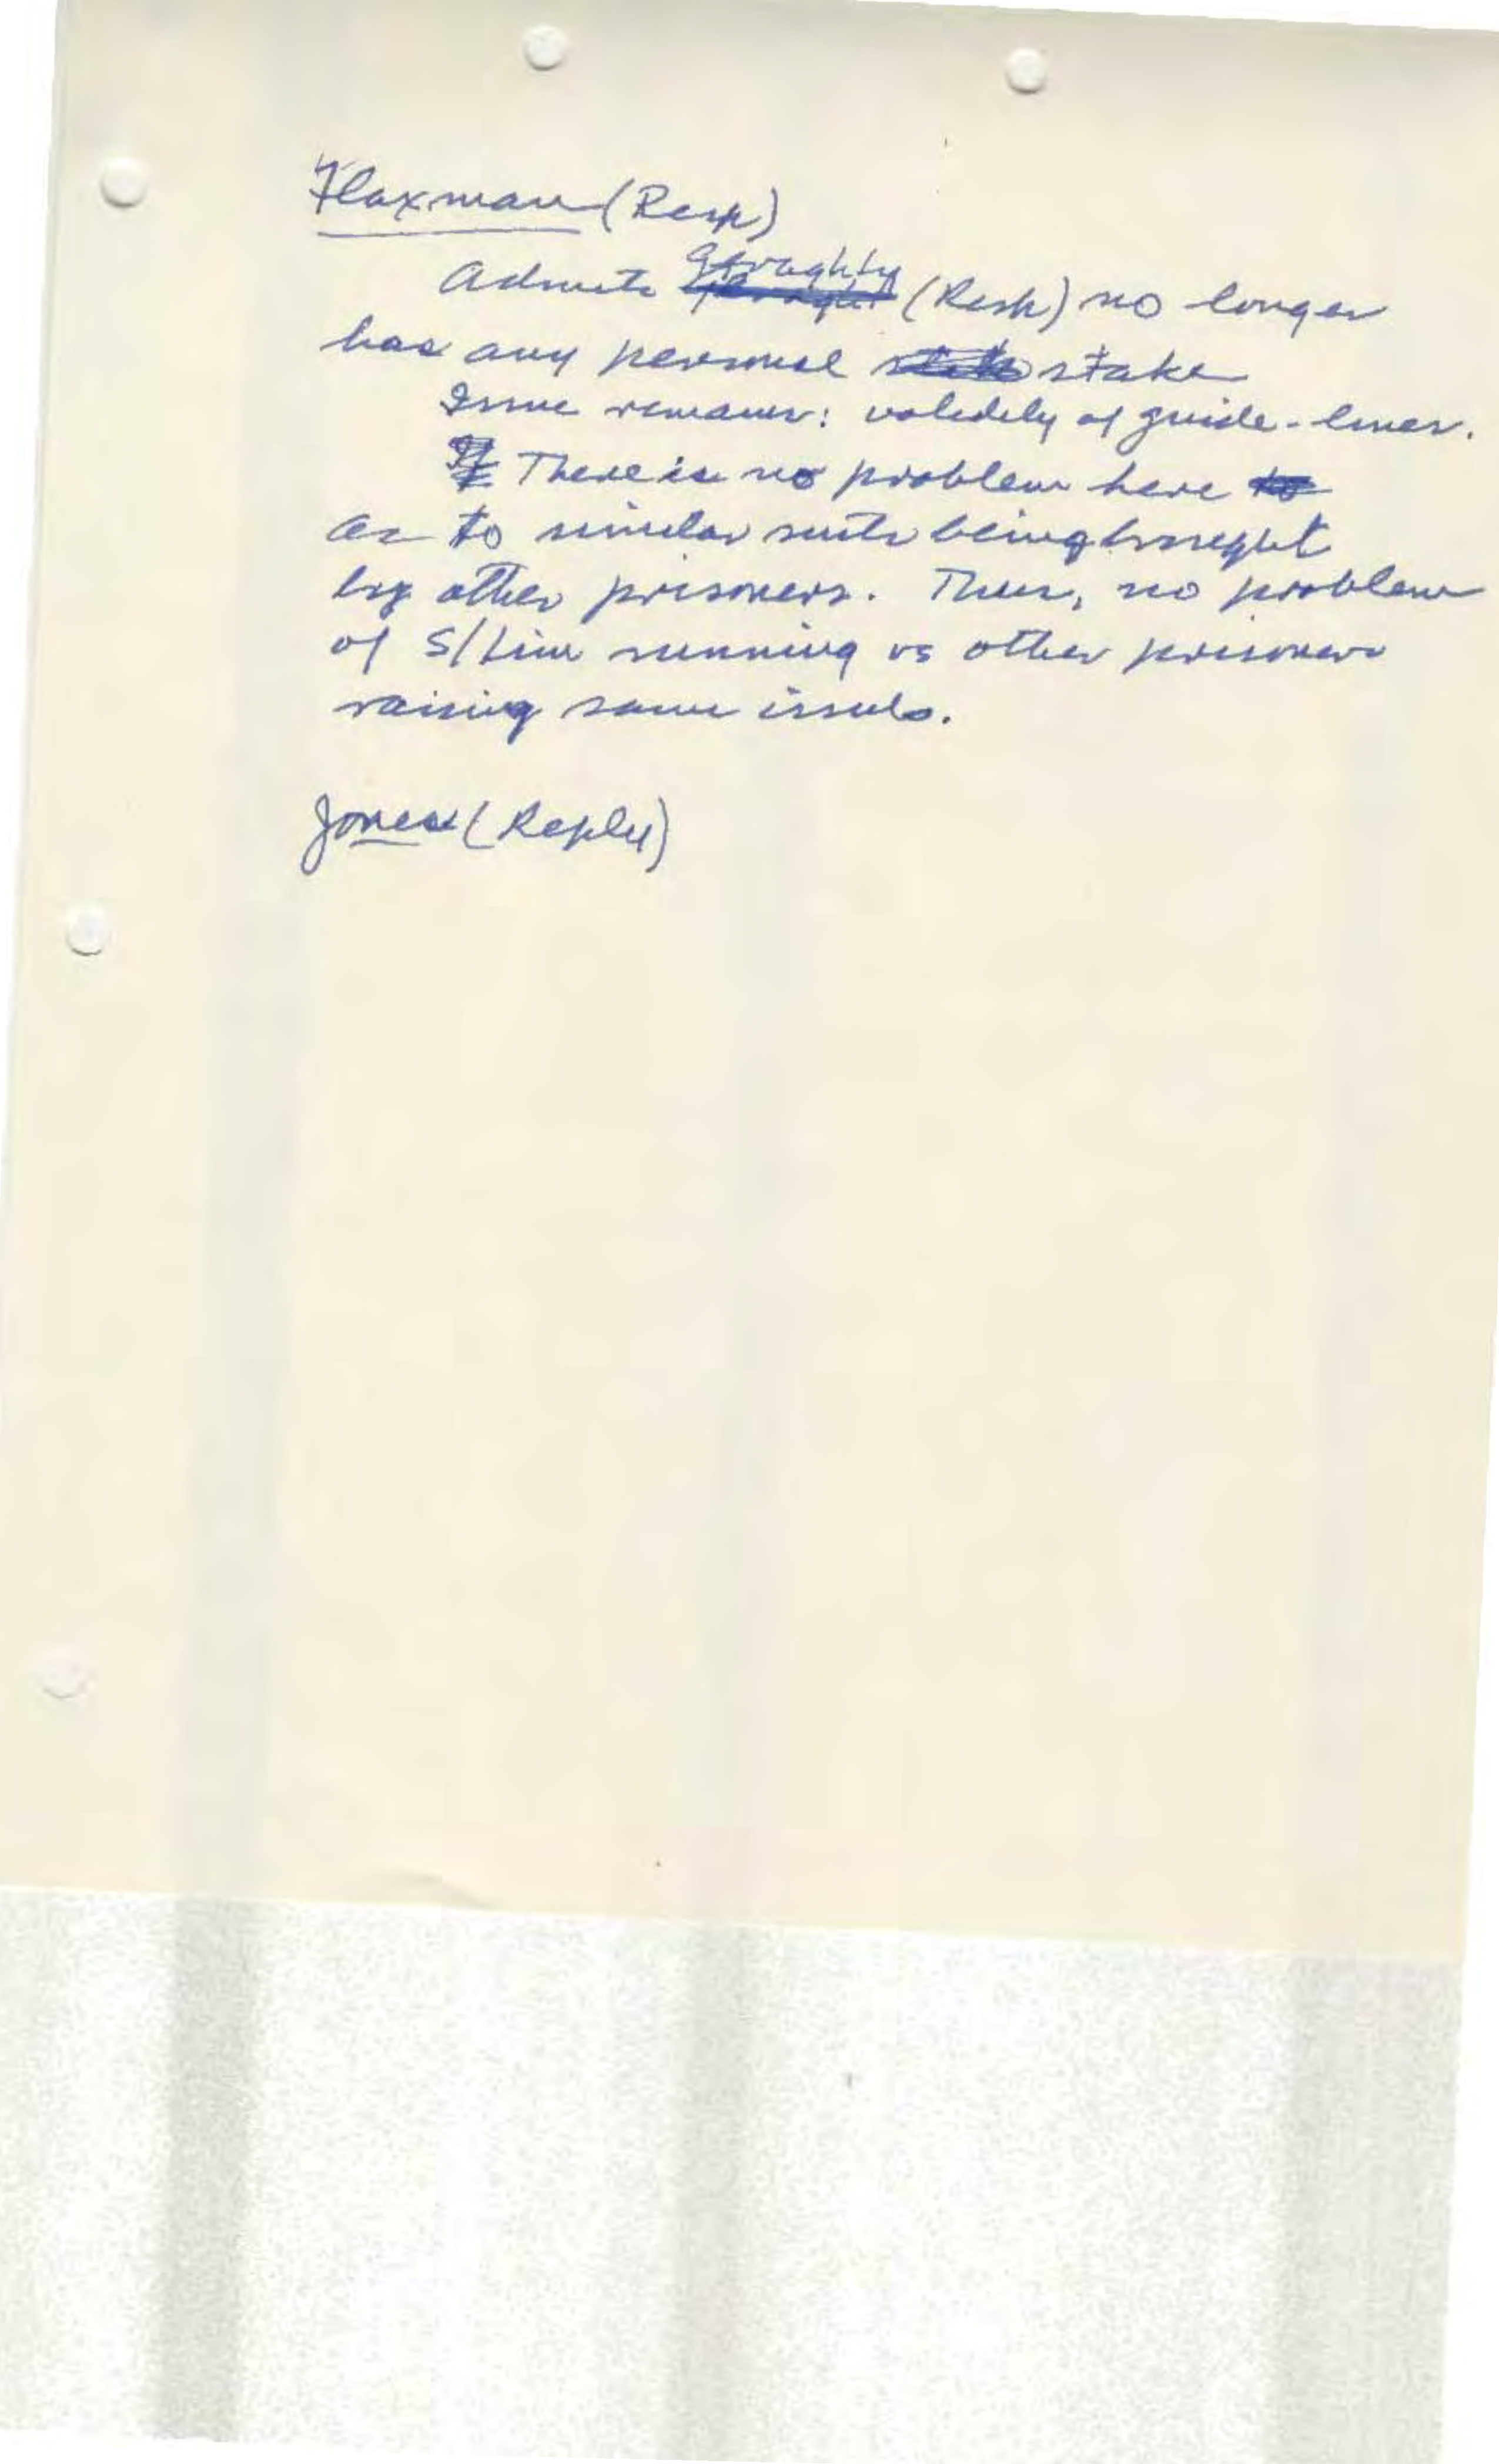 Flaxman (Resp)
Admits Geraghty (Resp) no longer
has any personal stake
Issue remains: validity of guide-lines.
There is no problem here
as to similar suits being brought
by other prisoners. Thus, no problem
of S/Lim running vs other prisoners
raising same issues.
Jones (Reply)